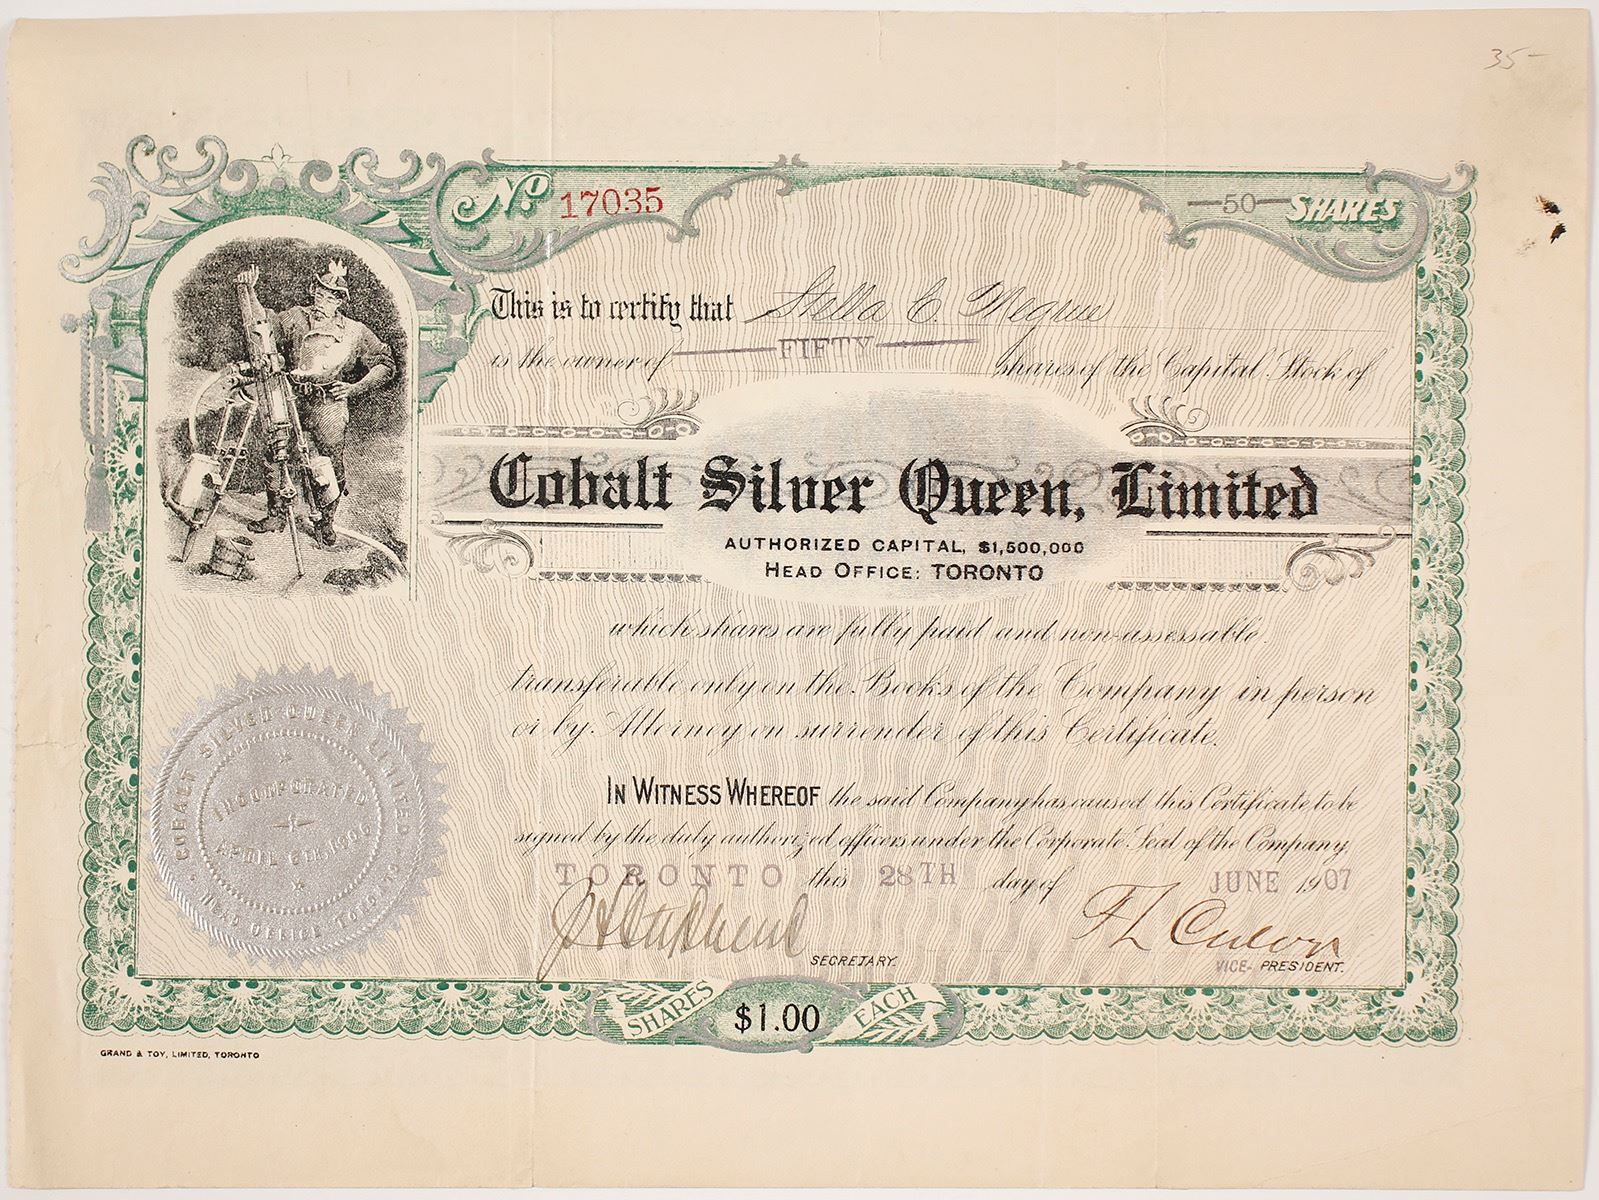 35-
No 17035
—50— SHARES
This is to certify that Stella C. Megrue
is the owner of —FIFTY— shares of the Capital Stock of
Cobalt Silver Queen, Limited
AUTHORIZED CAPITAL, $1,500,000
HEAD OFFICE: TORONTO
which shares are fully paid and non-assessable.
transferable only on the Books of the Company in person
or by Attorney on surrender of this Certificate.
IN WITNESS WHEREOF the said Company has caused this Certificate to be
signed by the duly authorized officers under the Corporate Seal of the Company
TORONTO this 28TH day of JUNE 1907
SECRETARY.
F L Culver
VICE- PRESIDENT.
COBALT SILVER QUEEN LIMITED
INCORPORATED
APRIL 6TH, 1906
HEAD OFFICE TORONTO
SHARES $1.00 EACH
GRAND & TOY, LIMITED, TORONTO